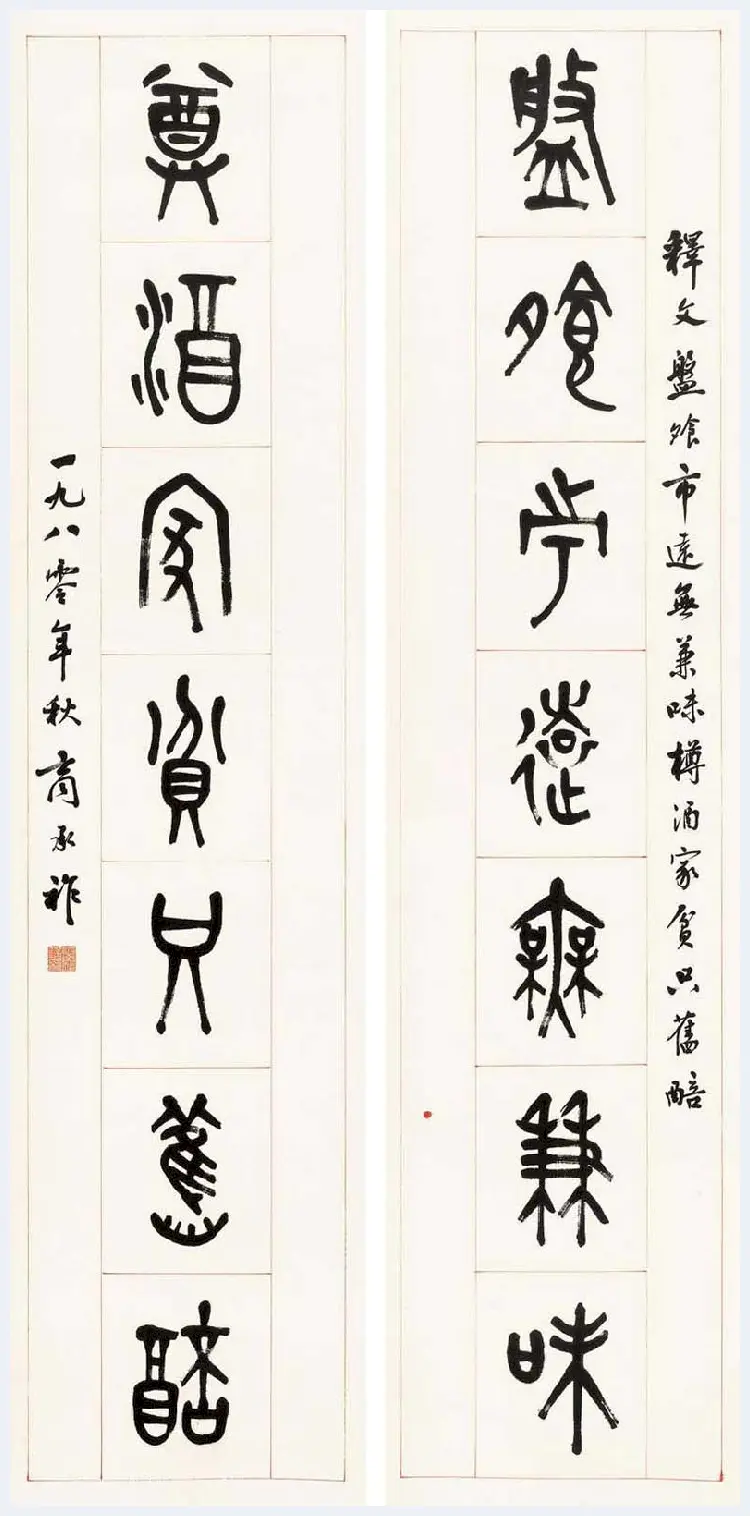 釋文盤飱市遠無兼味樽酒家貧只舊醅
盤飱市遠無兼味
尊酒家貧只舊醅
一九八零年秋商承祚